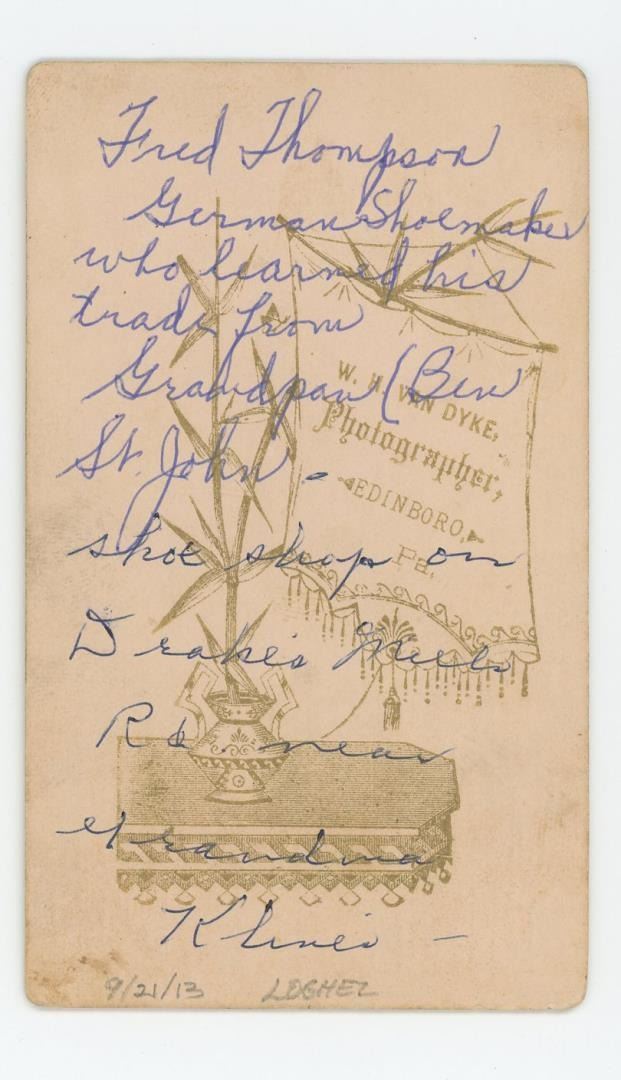 Fred Thompson
German Shoemaker
who learned his
trade from
Grandpau (Ben
St. John -
shoe shop on
Drake's Mills
Rd near
Grandma
Klines -
W. H. VAN DYKE,
Photographer,
EDINBORO,
Pa.
9/21/13 LOGHEZ